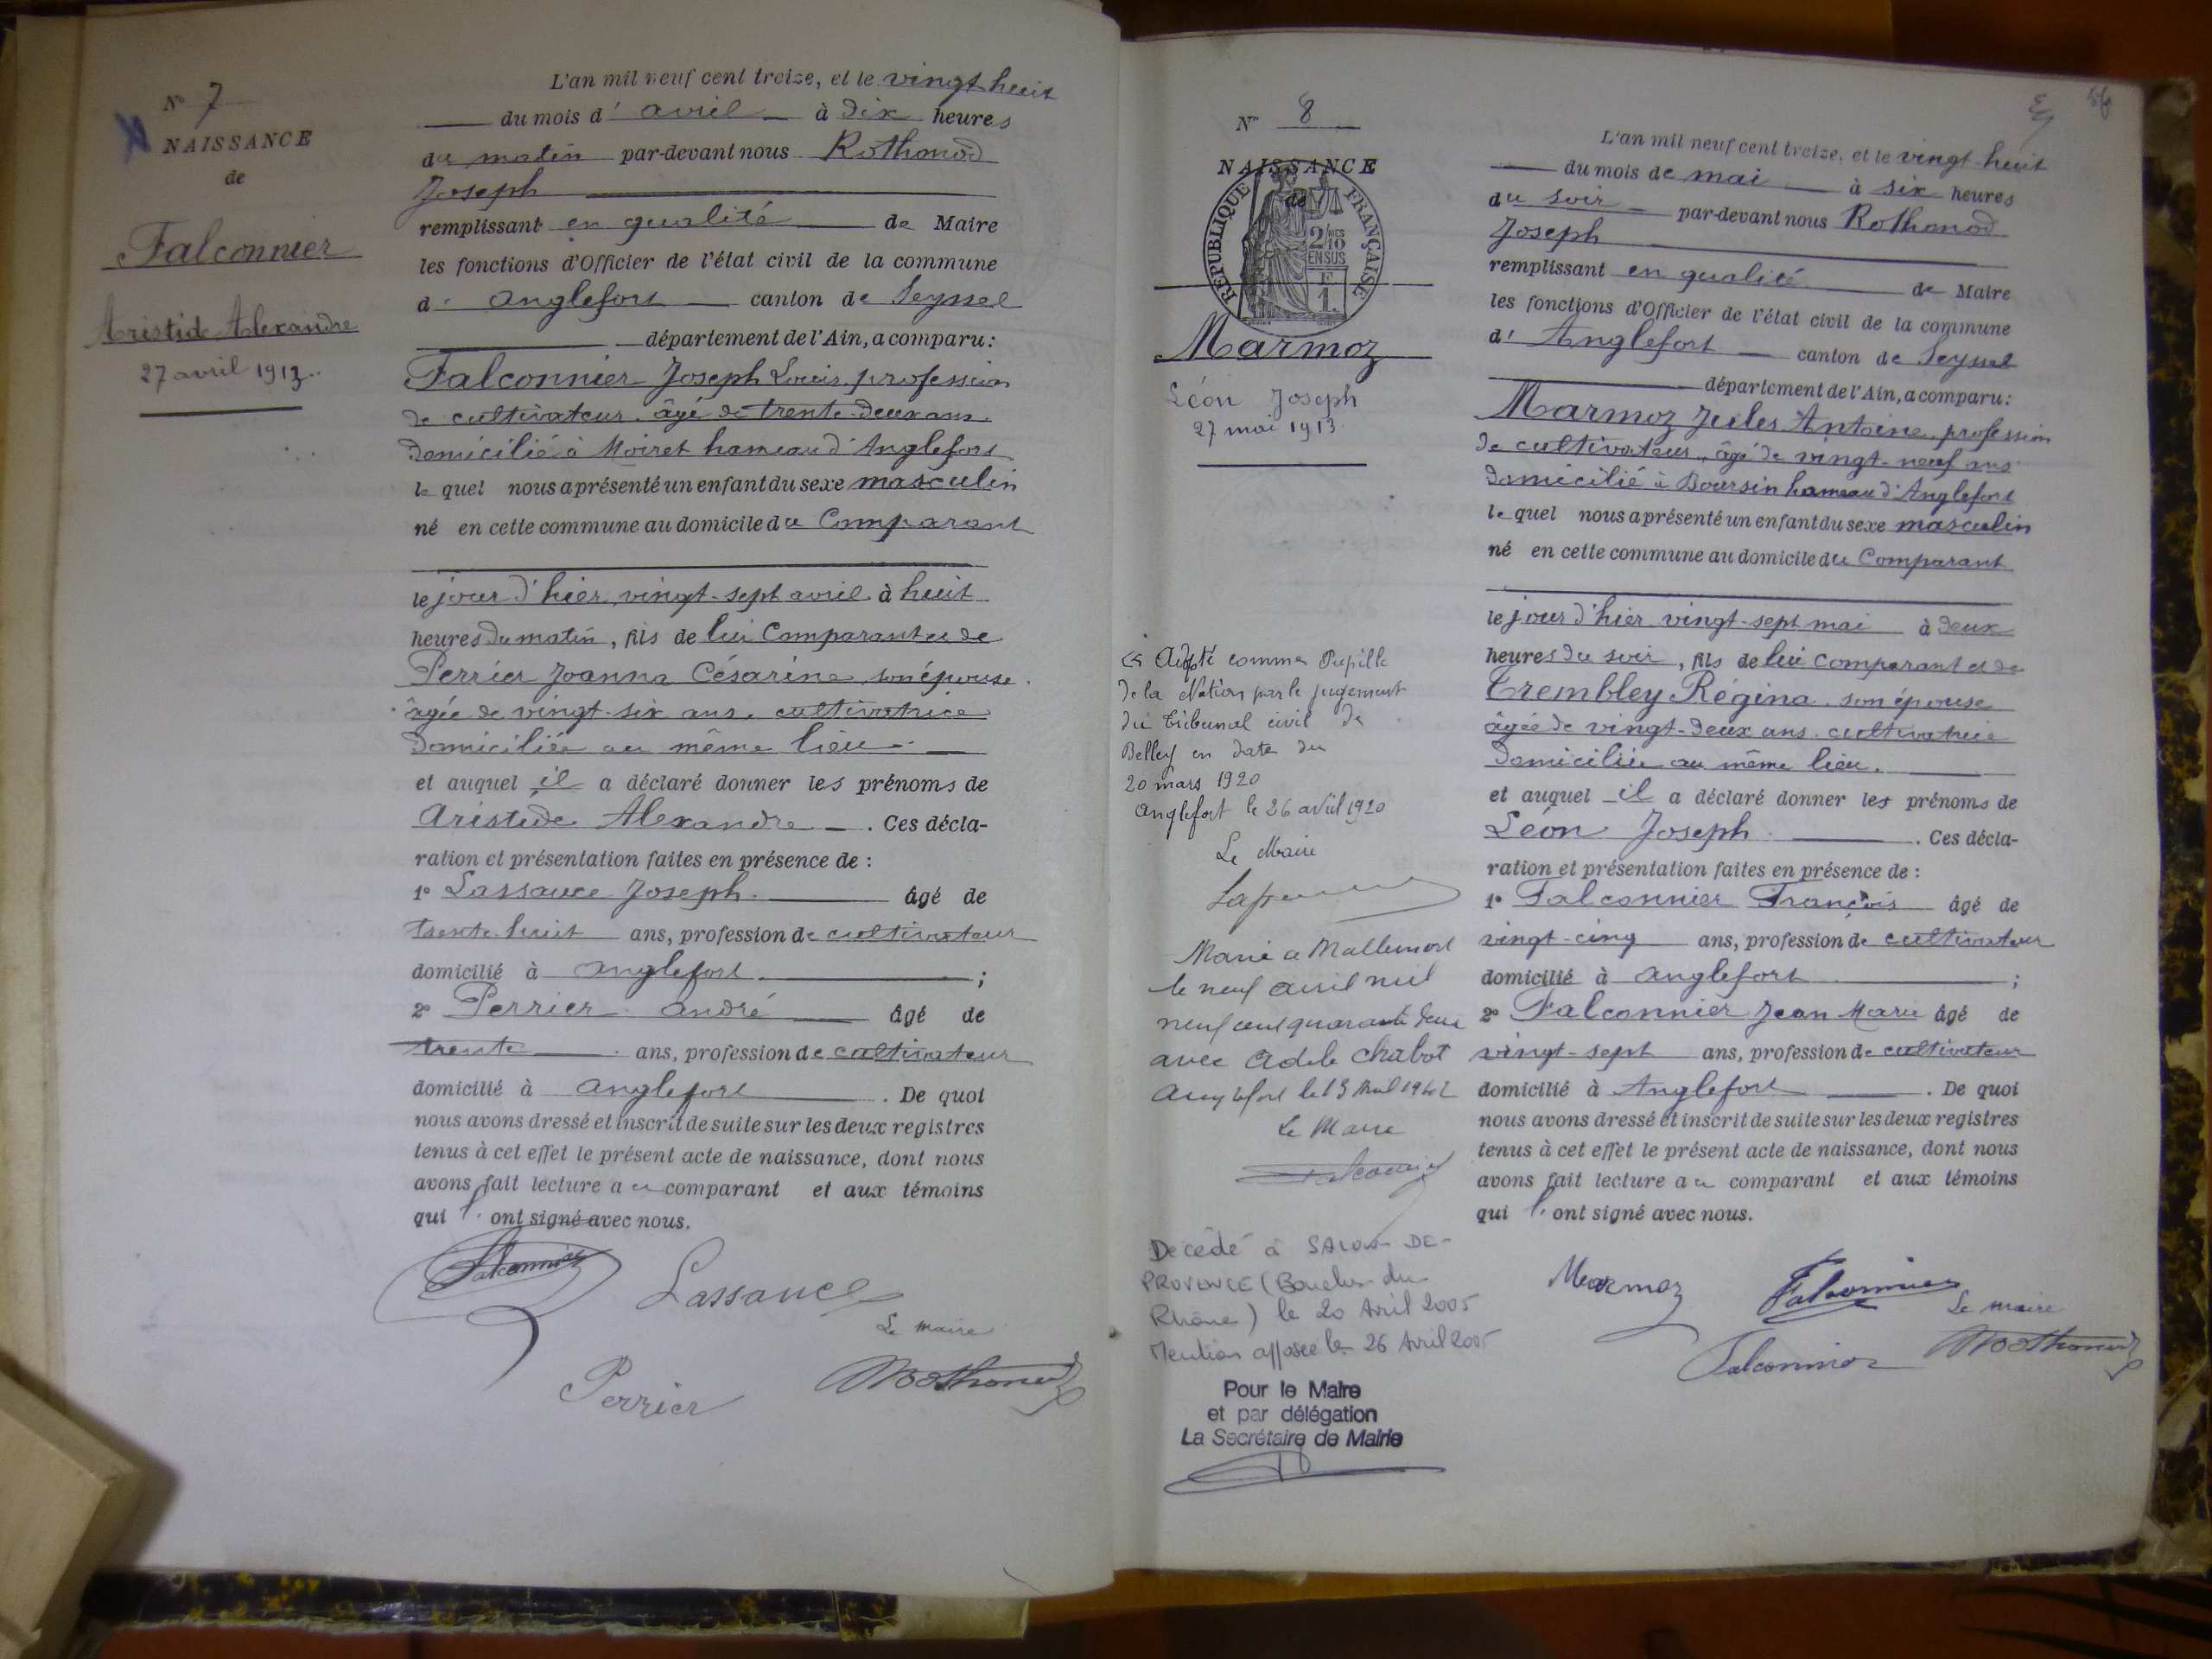 N° 7
NAISSANCE
de
Falconnier
Aristide Alexandre
27 avril 1913.
L'an mil neuf cent treize, et le vingt huit
du mois d' avril à dix heures
du matin par-devant nous Rothonod
Joseph
remplissant en qualité de Maire
les fonctions d'Officier de l'état civil de la commune
d' anglefort canton de Seyssel
département de l'Ain, a comparu:
Falconnier Joseph Louis, profession
de cultivateur, âgé de trente-deux ans
domicilié à Moiret hameau d'Anglefort
le quel nous a présenté un enfant du sexe masculin
né en cette commune au domicile du Comparant
le jour d'hier, vingt-sept avril à huit
heures du matin, fils de lui Comparant et de
Perrier Joanna Césarine, son épouse
âgée de vingt-six ans, cultivatrice
domiciliée au même lieu
et auquel il a déclaré donner les prénoms de
Aristide Alexandre. Ces décla-
ration et présentation faites en présence de :
1° Lassauce Joseph. âgé de
trente huit ans, profession de cultivateur
domicilié à anglefort ;
2° Perrier andré âgé de
trente ans, profession de cultivateur
domicilié à anglefort. De quoi
nous avons dressé et inscrit de suite sur les deux registres
tenus à cet effet le présent acte de naissance, dont nous
avons fait lecture au comparant et aux témoins
qui l' ont signé avec nous.
Falconnier
Lassauce
Le maire
Perrier
Rothonod
N° 8
NAISSANCE
de
REPUBLIQUE FRANÇAISE
2/10MES
EN SUS
F.
1.
Marmoz
Léon Joseph
27 mai 1913.
Adopté comme Pupille
de la Nation par le jugement
du Tribunal civil de
Belley en date du
20 mars 1920
Anglefort le 26 avril 1920
Le Maire
Marié a Mallemort
le neuf avril mil
neuf cent quarante deux
avec Adele Chabot
Anglefort le 13 Avril 1942
Le Maire
Décédé à SALON-DE-
PROVENCE (Bouches-du
Rhône) le 20 Avril 2005
Mention apposée le 26 Avril 2005
Pour le Maire
et par délégation
La Secrétaire de Mairie
L'an mil neuf cent treize, et le vingt-huit
du mois de mai à six heures
du soir par-devant nous Rothonod
Joseph
remplissant en qualité de Maire
les fonctions d'Officier de l'état civil de la commune
d' Anglefort canton de Seyssel
département de l'Ain, a comparu:
Marmoz Jules Antoine, profession
de cultivateur, âgé de vingt-neuf ans
domicilié à Boursin hameau d'Anglefort
le quel nous a présenté un enfant du sexe masculin
né en cette commune au domicile du Comparant
le jour d'hier vingt-sept mai à deux
heures du soir, fils de lui comparant et de
Trembley Régina, son épouse
âgée de vingt-deux ans, cultivatrice
domiciliée au même lieu.
et auquel il a déclaré donner les prénoms de
Léon Joseph. Ces décla-
ration et présentation faites en présence de :
1° Falconnier François âgé de
vingt-cinq ans, profession de cultivateur
domicilié à anglefort ;
2° Falconnier Jean Marie âgé de
vingt-sept ans, profession de cultivateur
domicilié à Anglefort. De quoi
nous avons dressé et inscrit de suite sur les deux registres
tenus à cet effet le présent acte de naissance, dont nous
avons fait lecture au comparant et aux témoins
qui l' ont signé avec nous.
Marmoz
Falconnier
Le maire
Falconnier
Rothonod